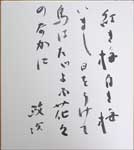 紅き梅白き梅
いまし日をうけて
鳥はたよふ花々
のなかに
政次